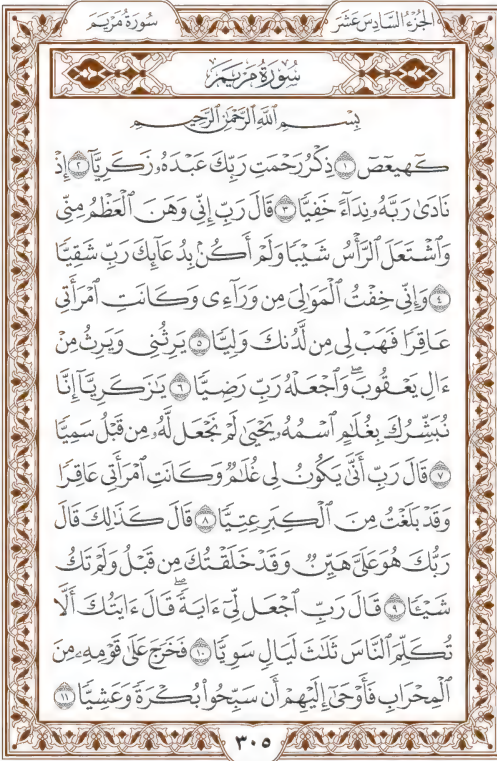 الجُزْءُ السَّادِسَ عَشَرَ
سُورَةُ مَرْيَمَ
سُورَةُ مَرْيَمَ
بِسْمِ ٱللَّهِ ٱلرَّحْمَٰنِ ٱلرَّحِيمِ
كٓهيعٓصٓ ١ ذِكْرُ رَحْمَتِ رَبِّكَ عَبْدَهُۥ زَكَرِيَّآ ٢ إِذْ
نَادَىٰ رَبَّهُۥ نِدَآءً خَفِيًّا ٣ قَالَ رَبِّ إِنِّى وَهَنَ ٱلْعَظْمُ مِنِّى
وَٱشْتَعَلَ ٱلرَّأْسُ شَيْبًا وَلَمْ أَكُنۢ بِدُعَآئِكَ رَبِّ شَقِيًّا
٤ وَإِنِّى خِفْتُ ٱلْمَوَٰلِىَ مِن وَرَآءِى وَكَانَتِ ٱمْرَأَتِى
عَاقِرًا فَهَبْ لِى مِن لَّدُنكَ وَلِيًّا ٥ يَرِثُنِى وَيَرِثُ مِنْ
ءَالِ يَعْقُوبَۖ وَٱجْعَلْهُ رَبِّ رَضِيًّا ٦ يَٰزَكَرِيَّآ إِنَّا
نُبَشِّرُكَ بِغُلَٰمٍ ٱسْمُهُۥ يَحْيَىٰ لَمْ نَجْعَل لَّهُۥ مِن قَبْلُ سَمِيًّا
٧ قَالَ رَبِّ أَنَّىٰ يَكُونُ لِى غُلَٰمٌ وَكَانَتِ ٱمْرَأَتِى عَاقِرًا
وَقَدْ بَلَغْتُ مِنَ ٱلْكِبَرِ عِتِيًّا ٨ قَالَ كَذَٰلِكَ قَالَ
رَبُّكَ هُوَ عَلَىَّ هَيِّنٌ وَقَدْ خَلَقْتُكَ مِن قَبْلُ وَلَمْ تَكُ
شَيْـًٔا ٩ قَالَ رَبِّ ٱجْعَل لِّىٓ ءَايَةًۖ قَالَ ءَايَتُكَ أَلَّا
تُكَلِّمَ ٱلنَّاسَ ثَلَٰثَ لَيَالٍ سَوِيًّا ١٠ فَخَرَجَ عَلَىٰ قَوْمِهِۦ مِنَ
ٱلْمِحْرَابِ فَأَوْحَىٰٓ إِلَيْهِمْ أَن سَبِّحُوا۟ بُكْرَةً وَعَشِيًّا ١١
٣٠٥